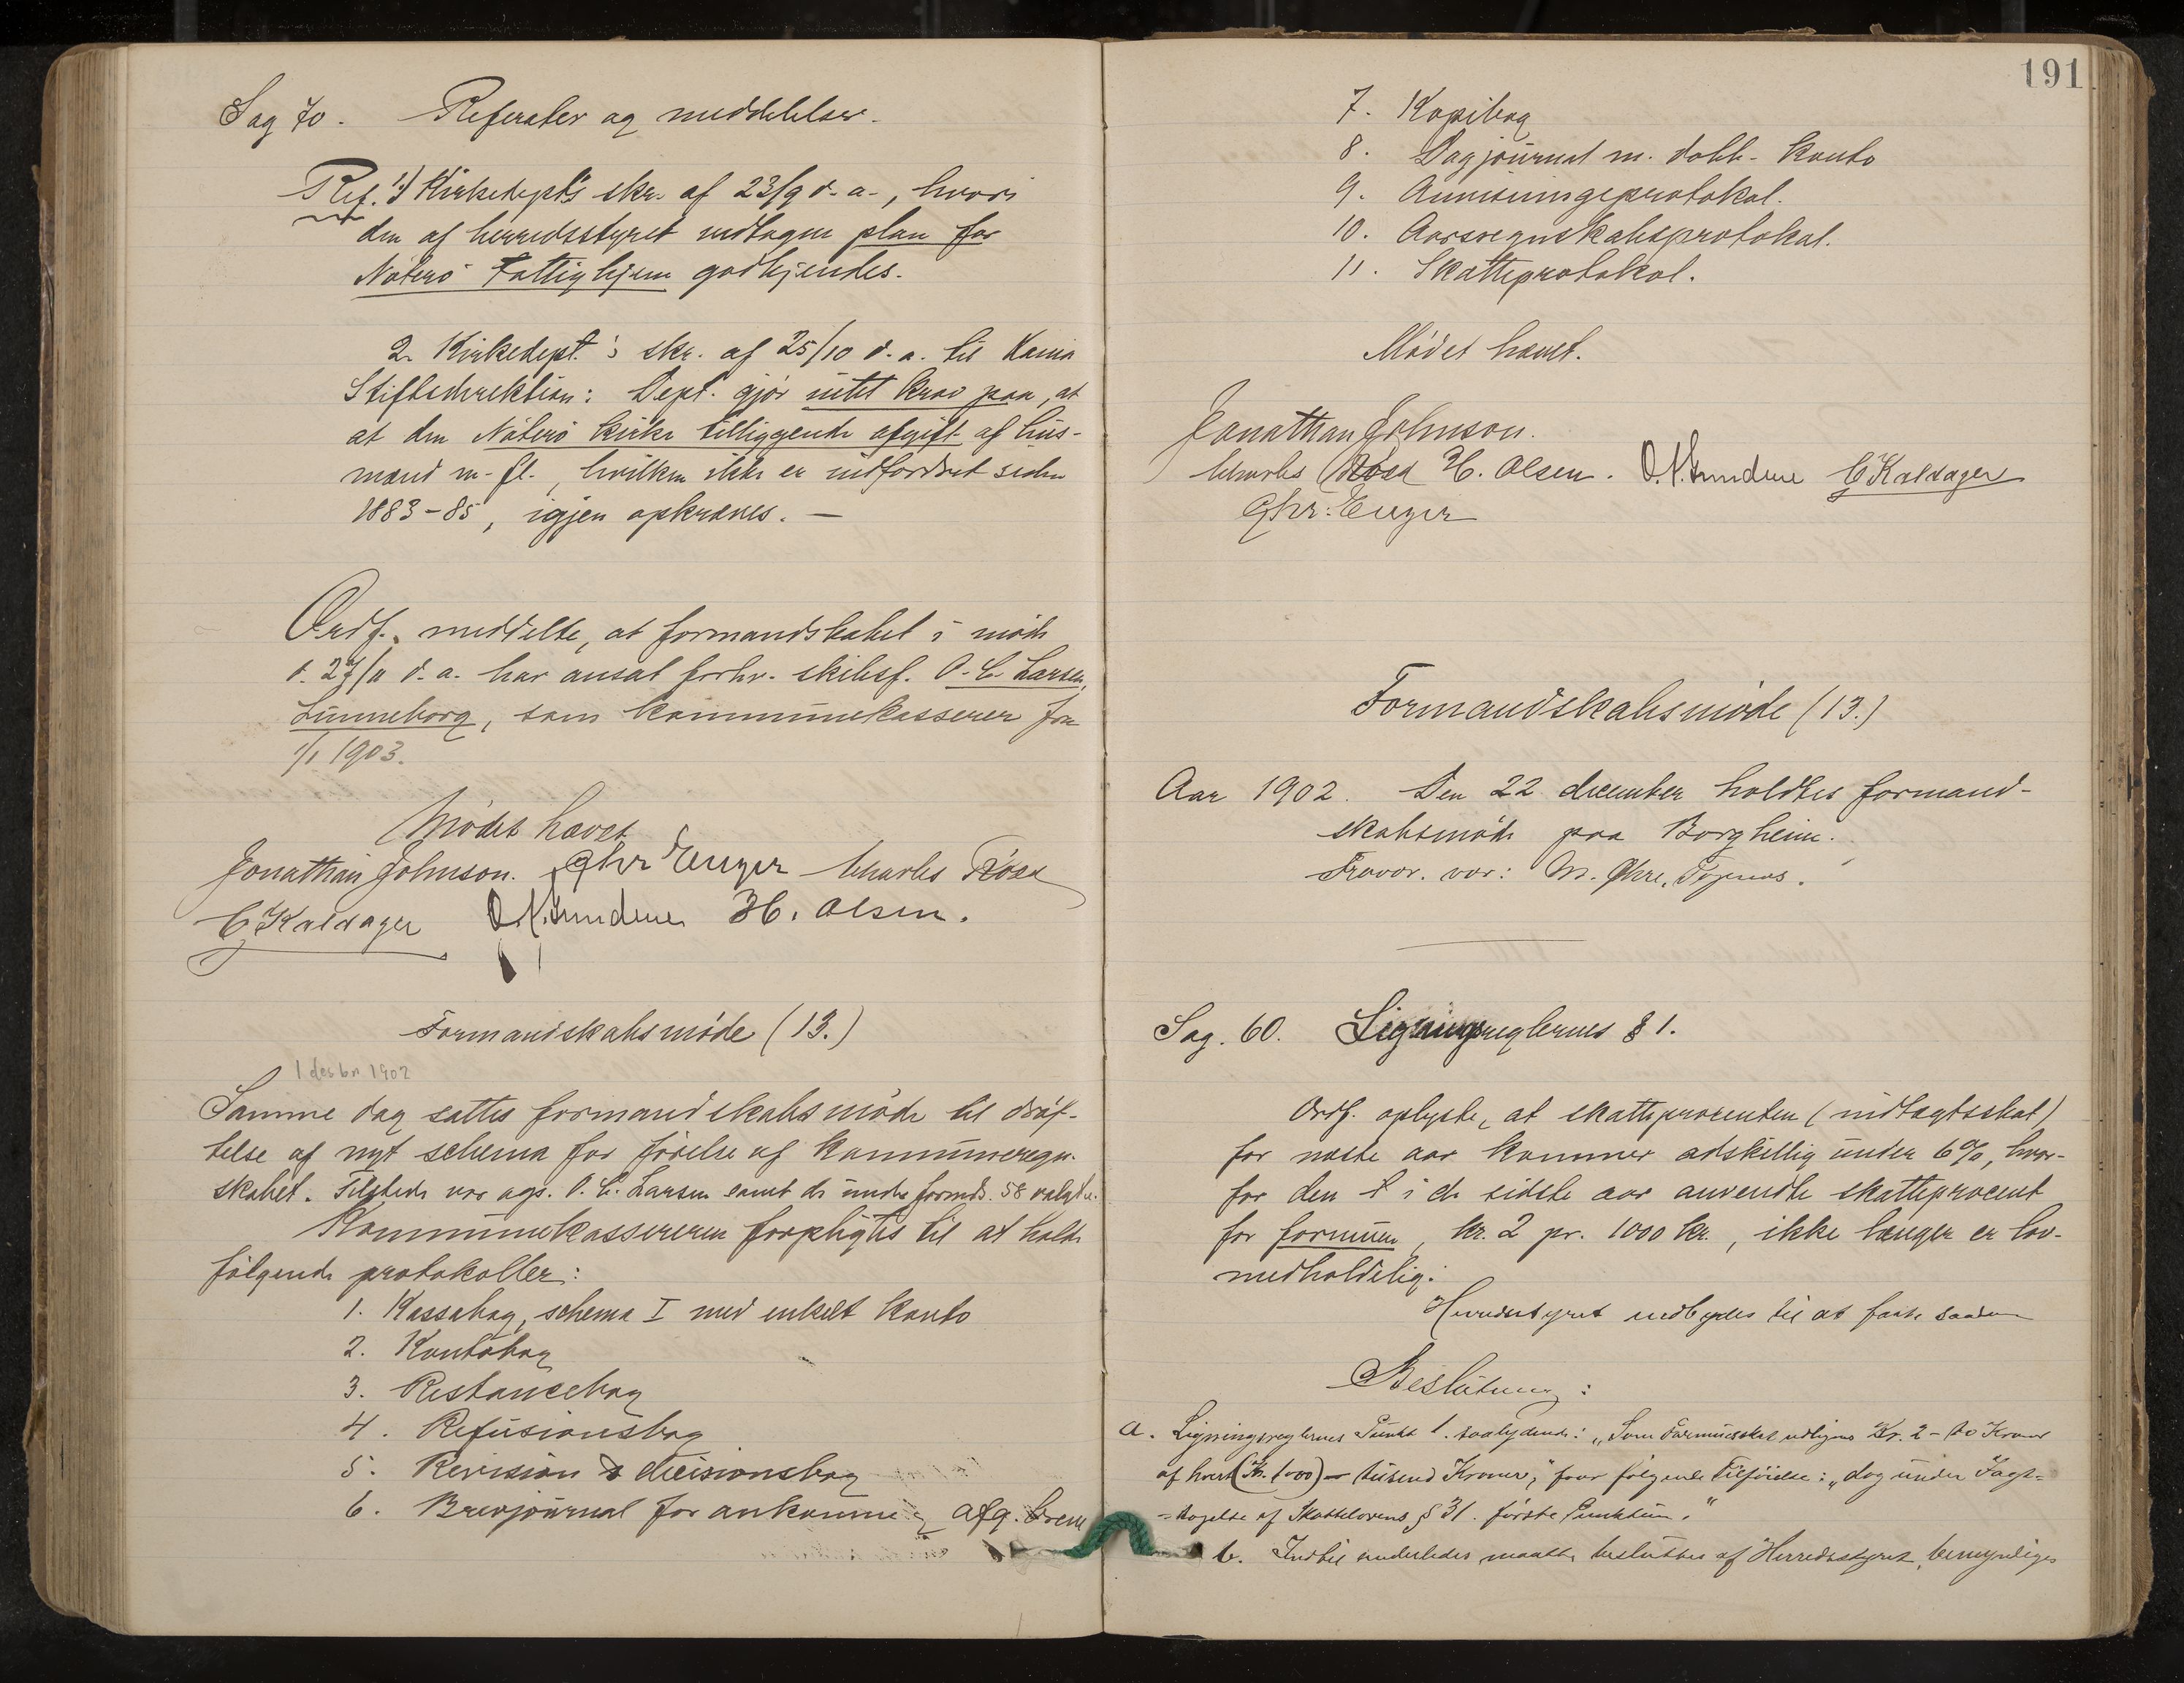 Sag 70. Referater og meddelelser.
Ref. 1) Kirkedept's skr. af 23/9 d. a., hvori
den af herredsstyret vedtagne plan for
Nøterø Fattighjem godkjendes.
2. Kirkedept.'s skr. af 25/10 d. a. til Kania
Stiftsdirektion: Dept. gjør intet krav paa, at
at den Nøterø kirke tilliggende afgift af hus-
mænd m. fl., hvilken ikke er indfordret siden
1883-85, igjen opkræves. —
Ordf. meddelte, at formandskabet i møde
d. 27/11 d. a. har ansat forhv. skibsf. O. C. Larsen,
Linneborg, som kommunekasserer fra
1/1 1903.
Mødet hævet
Jonathan Johnson. Chr Enger Charles Røed
C Kaldager O. N. Lundene H. Olsen.
Formandskabsmøde (13.)
1 desbr 1902
Samme dag sattes formandskabsmøde til drøf-
telse af nyt schema for førelse af kommuneregn-
skabet. Tilstede var ogs. O. C. Larsen samt de under formds. 58 valgte.
Kommunekassereren forpligtes til at holde
følgende protokoller:
1. Kassabog, schema I med enkelt konto
2. Kontobog
3. Restancebog
4. Refusionsbog
5. Revision & decisionsbog
6. Brevjournal for ankomne og afg. breve
191
7. Kopibog
8. Dagjournal m. dobb. konto
9. Anvisningsprotokol.
10. Aarsregnskabsprotokol.
11. Skatteprotokol.
Mødet hævet.
Jonathan Johnson.
Charles Røed H. Olsen. O. N. Lundene C Kaldager
Chr: Enger
Formandskabsmøde (13.)
Aar 1902. Den 22 december holdtes formand-
skabsmøde paa Borgheim.
Fravær. var: M. Chre.
Sag. 60. Ligningsreglernes § 1.
Ordf. oplyste, at skatteprocenten (indtægtsskat)
for næste aar kommer adskillig under 6%, hvor-
for den i de sidste aar anvendte skatteprocent
for formue, kr. 2 pr. 1000 kr., ikke længer er lov-
medholdelig.
Herredsstyret indbydes til at fatte saadan
Beslutning:
a. Ligningsreglernes Punkt 1. saalydende: „Som Formuesskat udlignes Kr. 2 - to Kroner
af hvert (Kr. 1000) — tusend Kroner," faar følgende Tilføielse: „dog under Iagt-
=tagelse af Skattelovens § 31. første Punktum."
b. Indtil anderledes maatte besluttes af Herredsstyret, bemyndiges